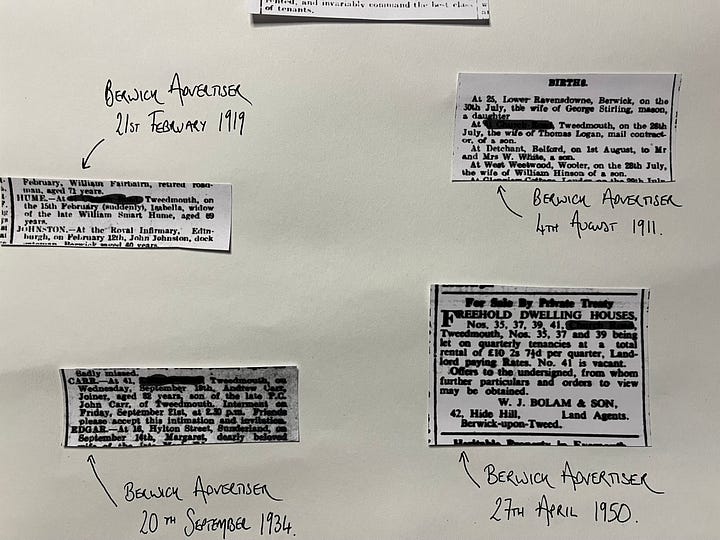 rented, and invariably command the best class
of tenants.
BERWICK ADVERTISER
21ST FEBRUARY 1919
February, William Fairbairn, retired road-
man, aged 71 years.
HUME.—At Tweedmouth, on
the 15th February (suddenly), Isabella, widow
of the late William Smart Hume, aged 89
years.
JOHNSTON.—At the Royal Infirmary, Edin-
burgh, on February 12th, John Johnston, dock
Berwick aged 40 years.
BIRTHS.
At 25, Lower Ravensdowne, Berwick, on the
30th July, the wife of George Stirling, mason,
a daughter
At Church Road, Tweedmouth, on the 28th
July, the wife of Thomas Logan, mail contract-
or, of a son.
At Detchant, Belford, on 1st August, to Mr
and Mrs W. White, a son.
At West Weetwood, Wooler, on the 28th July,
the wife of William Hinson of a son.
BERWICK ADVERTISER
4TH AUGUST 1911.
Sadly missed.
CARR.—At 41, Tweedmouth, on
Wednesday, September 19th, Andrew Carr,
Joiner, aged 82 years, son of the late P.C.
John Carr, of Tweedmouth. Interment on
Friday, September 21st, at 2.30 p.m. Friends
please accept this intimation and invitation.
EDGAR.—At 16, Hylton Street, Sunderland, on
September 14th, Margaret, dearly beloved
wife of the late
BERWICK ADVERTISER
20TH SEPTEMBER 1934.
For Sale By Private Treaty
FREEHOLD DWELLING HOUSES,
Nos. 35, 37, 39, 41, Church Road,
Tweedmouth, Nos. 35, 37 and 39 being
let on quarterly tenancies at a total
rental of £10 2s 7½d per quarter, Land-
lord paying Rates. No. 41 is vacant.
Offers to the undersigned, from whom
further particulars and orders to view
may be obtained.
W. J. BOLAM & SON,
42, Hide Hill, Land Agents.
Berwick-upon-Tweed.
BERWICK ADVERTISER
27TH APRIL 1950.